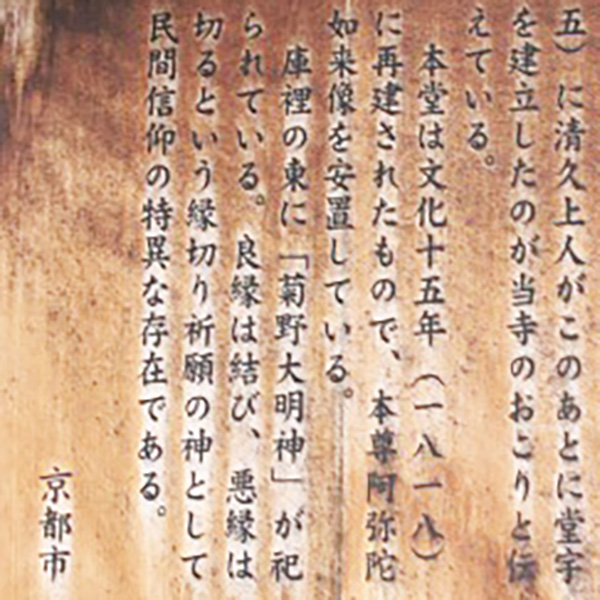 五）に清久上人がこのあとに堂宇
を建立したのが当寺のおこりと伝
えている。
本堂は文化十五年（一八一八）
に再建されたもので、本尊阿弥陀
如来像を安置している。
庫裡の東に「菊野大明神」が祀
られている。良縁は結び、悪縁は
切るという縁切り祈願の神として
民間信仰の特異な存在である。
京都市